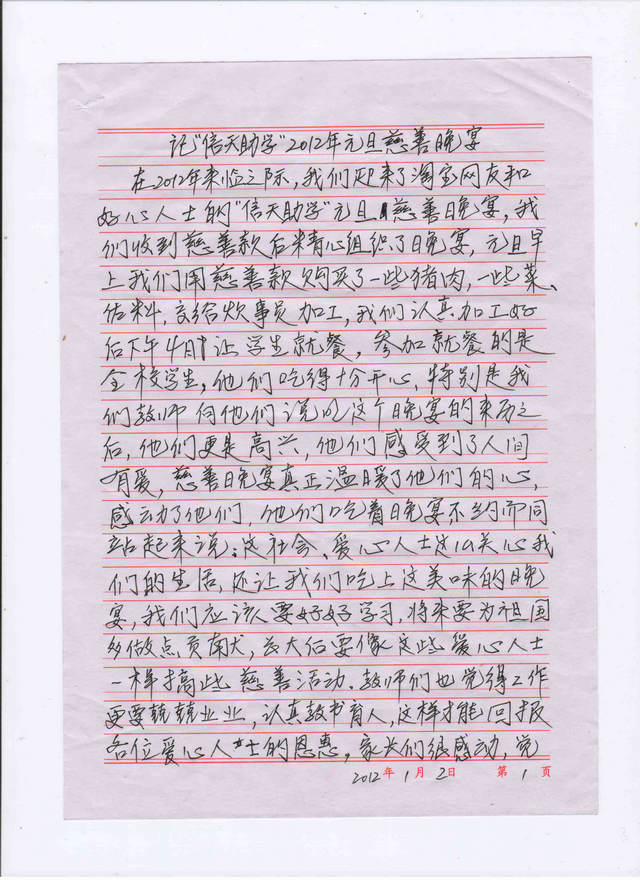 记“信天助学”2012年元旦慈善晚宴
在2012年来临之际，我们迎来了淘宝网友和
好心人士的“信天助学”元旦慈善晚宴，我
们收到慈善款后精心组织了晚宴，元旦早
上我们用慈善款购买了一些猪肉，一些菜、
佐料，交给炊事员加工，我们认真加工好
后下午4时让学生就餐，参加就餐的是
全校学生，他们吃得十分开心，特别是我
们教师向他们说以这个晚宴的来历之
后，他们更是高兴，他们感受到了人间
有爱，慈善晚宴真正温暖了他们的心，
感动了他们，他们吃着晚宴不约而同
站起来说：这社会、爱心人士这么关心我
们的生活，还让我们吃上这美味的晚
宴，我们应该要好好学习，将来要为祖国
多做点贡献，长大后要像这些爱心人士
一样搞些慈善活动。教师们也觉得工作
更要兢兢业业，认真教书育人，这样才能回报
各位爱心人士的恩惠，家长们很感动，觉
2012年1月2日 第1页